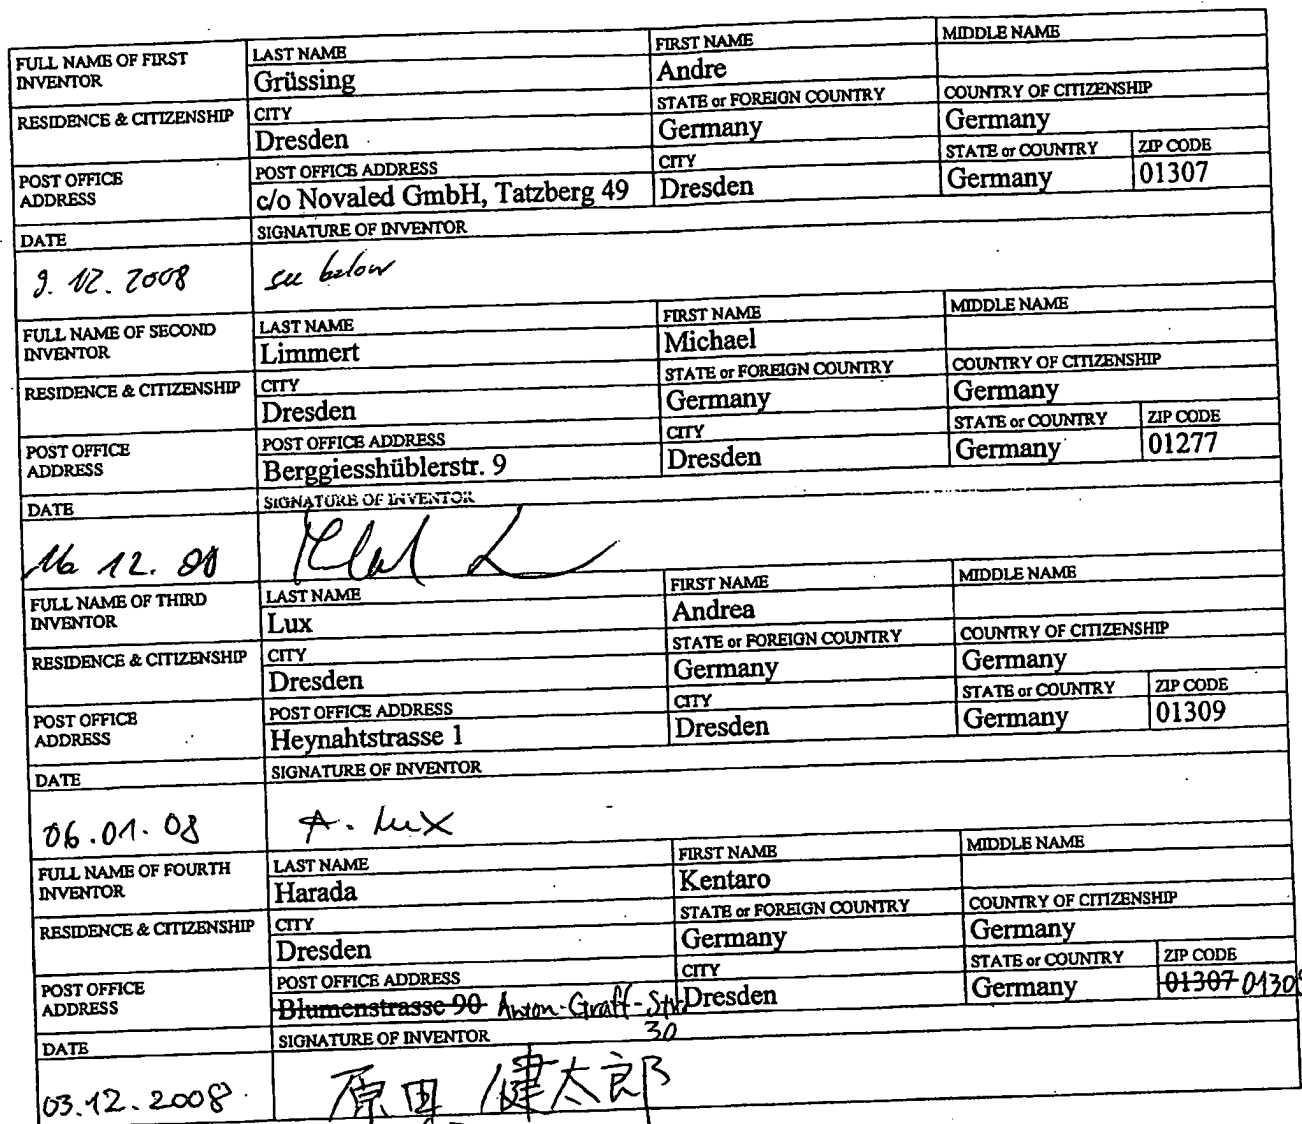 FULL NAME OF FIRST INVENTOR
LAST NAME
Grüssing
FIRST NAME
Andre
MIDDLE NAME
RESIDENCE & CITIZENSHIP
CITY
Dresden
STATE or FOREIGN COUNTRY
Germany
COUNTRY OF CITIZENSHIP
Germany
POST OFFICE ADDRESS
POST OFFICE ADDRESS
c/o Novaled GmbH, Tatzberg 49
CITY
Dresden
STATE or COUNTRY
Germany
ZIP CODE
01307
DATE
9. 12. 2008
SIGNATURE OF INVENTOR
see below
FULL NAME OF SECOND INVENTOR
LAST NAME
Limmert
FIRST NAME
Michael
MIDDLE NAME
RESIDENCE & CITIZENSHIP
CITY
Dresden
STATE or FOREIGN COUNTRY
Germany
COUNTRY OF CITIZENSHIP
Germany
POST OFFICE ADDRESS
POST OFFICE ADDRESS
Berggiesshüblerstr. 9
CITY
Dresden
STATE or COUNTRY
Germany
ZIP CODE
01277
DATE
12.
SIGNATURE OF INVENTOR
FULL NAME OF THIRD INVENTOR
LAST NAME
Lux
FIRST NAME
Andrea
MIDDLE NAME
RESIDENCE & CITIZENSHIP
CITY
Dresden
STATE or FOREIGN COUNTRY
Germany
COUNTRY OF CITIZENSHIP
Germany
POST OFFICE ADDRESS
POST OFFICE ADDRESS
Heynahtstrasse 1
CITY
Dresden
STATE or COUNTRY
Germany
ZIP CODE
01309
DATE
06.01.08
SIGNATURE OF INVENTOR
A. Lux
FULL NAME OF FOURTH INVENTOR
LAST NAME
Harada
FIRST NAME
Kentaro
MIDDLE NAME
RESIDENCE & CITIZENSHIP
CITY
Dresden
STATE or FOREIGN COUNTRY
Germany
COUNTRY OF CITIZENSHIP
Germany
POST OFFICE ADDRESS
POST OFFICE ADDRESS
Blumenstrasse 90 Anton-Graff-Str. 30
CITY
Dresden
STATE or COUNTRY
Germany
ZIP CODE
01307
DATE
03.12.2008
SIGNATURE OF INVENTOR
原田 健太郎